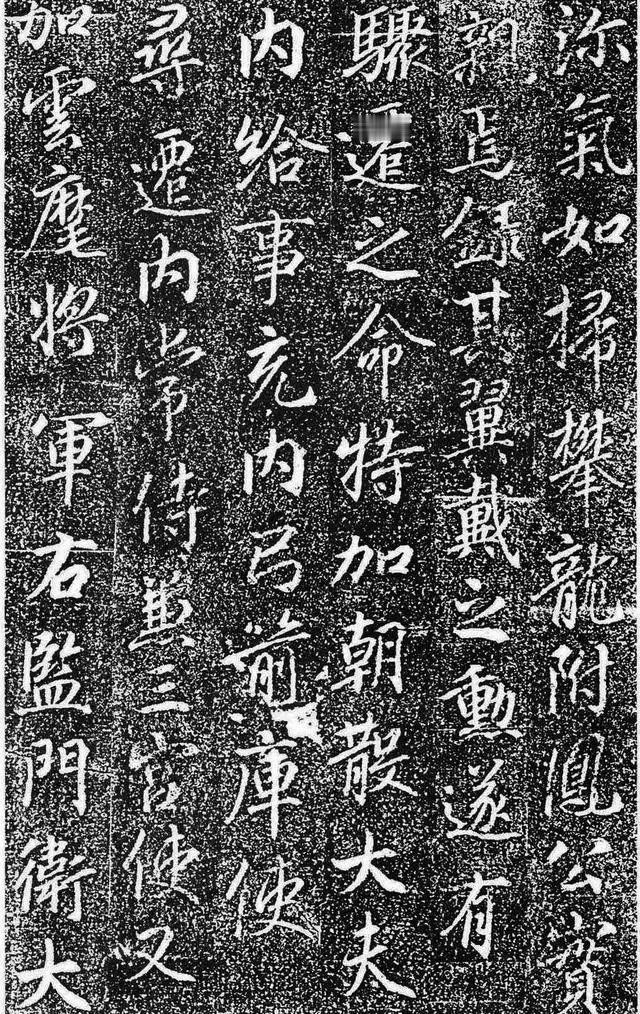 沵氣如掃攀龍附鳳公實
親焉録其翼戴之勳遂有
驟遷之命特加朝散大夫
内給事充内弓箭庫使
尋遷内常侍兼三宫使又
加雲麾將軍右監門衛大